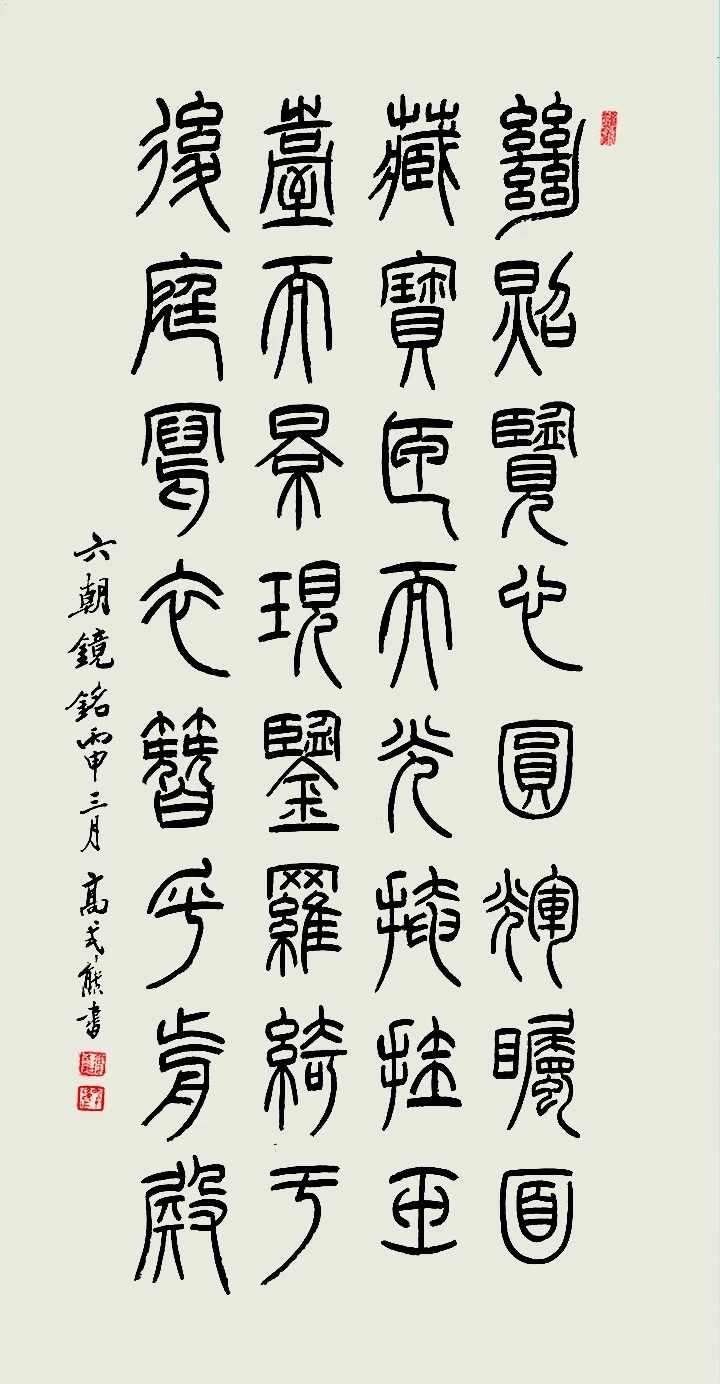 絕照覽心圓輝矚面
藏寶匣而光掩挂玉
臺而景現鑒羅綺于
後庭寫衣簪乎前殿
六朝鏡銘丙申三月高式熊書